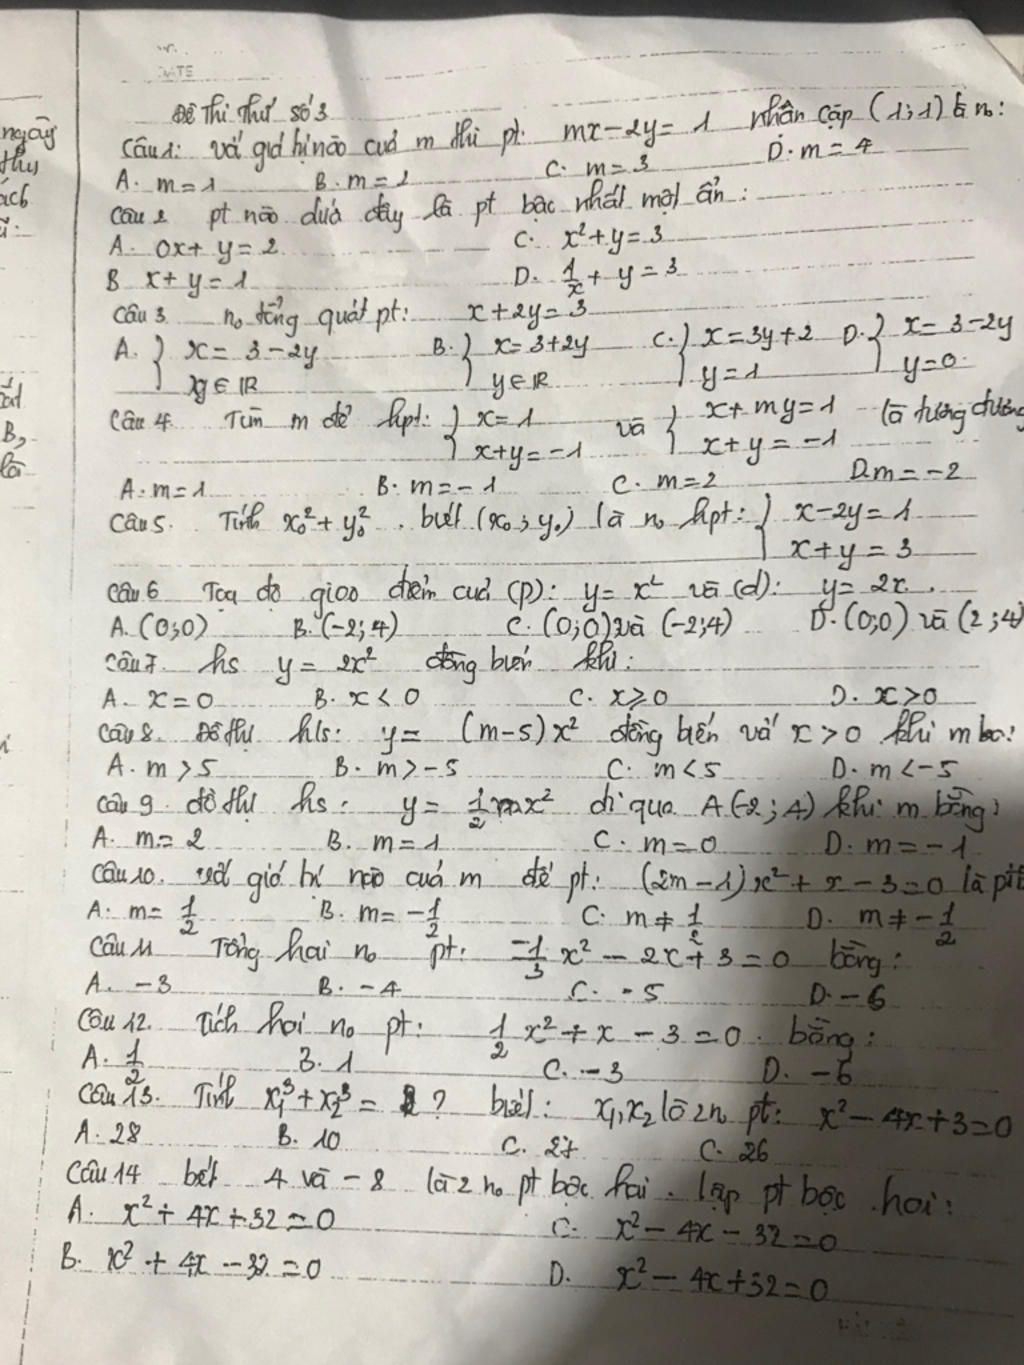 DATE
Đề thi thử số 3
Câu 1: với giá trị nào của m thì pt: mx - 2y = 1 nhận cặp (1;1) là no:
A. m = 1 B. m = 2 C. m = 3 D. m = 4
Câu 2 pt nào dưới đây là pt bậc nhất một ẩn:
A. 0x + y = 2 C. x² + y = 3
B x + y = 1 D. 1/x + y = 3
Câu 3 no tổng quát pt: x + 2y = 3
A. { x = 3 - 2y B. { x = 3 + 2y C. { x = 3y + 2 D. { x = 3 - 2y
y ∈ IR y ∈ IR y = 1 y = 0
Câu 4. Tìm m để hpt: { x = 1 và { x + my = 1 là tương đương
x + y = -1 x + y = -1
A. m = 1 B. m = -1 C. m = 2 D. m = -2
Câu 5. Tính x₀² + y₀². biết (x₀; y₀) là no hpt: { x - 2y = 1
x + y = 3
Câu 6 Toạ độ giao điểm của (P): y = x² và (d): y = 2x.
A. (0;0) B. (-2;4) C. (0;0) và (-2;4) D. (0;0) và (2;4)
Câu 7. hs y = 2x² đồng biến khi:
A. x = 0 B. x < 0 C. x ≥ 0 D. x > 0
Câu 8. Đồ thị h/s: y = (m-5)x² đồng biến với x > 0 khi m
A. m > 5 B. m > -5 C. m < 5 D. m < -5
Câu 9. đồ thị hs: y = 1/2 mx² đi qua A(-2;4) khi m bằng:
A. m = 2 B. m = 1 C. m = 0 D. m = -1
Câu 10. với giá trị nào của m để pt: (2m-1)x² + x - 3 = 0 là
A. m = 1/2 B. m = -1/2 C. m ≠ 1/2 D. m ≠ -1/2
Câu 11 Tổng hai no pt: -1/3 x² - 2x + 3 = 0 bằng:
A. -3 B. -4 C. -5 D. -6
Câu 12. Tích hai no pt: 1/2 x² + x - 3 = 0. bằng:
A. 1/2 B. 1 C. -3 D. -6
Câu 13. Tính x₁³ + x₂³ = ? biết: x₁, x₂ là 2 no pt: x² - 4x + 3 = 0
A. 28 B. 10 C. 27 C. 26
Câu 14 biết 4 và -8 là 2 no pt bậc hai. lập pt bậc hai:
A. x² + 4x + 32 = 0 C. x² - 4x - 32 = 0
B. x² + 4x - 32 = 0 D. x² - 4x + 32 = 0